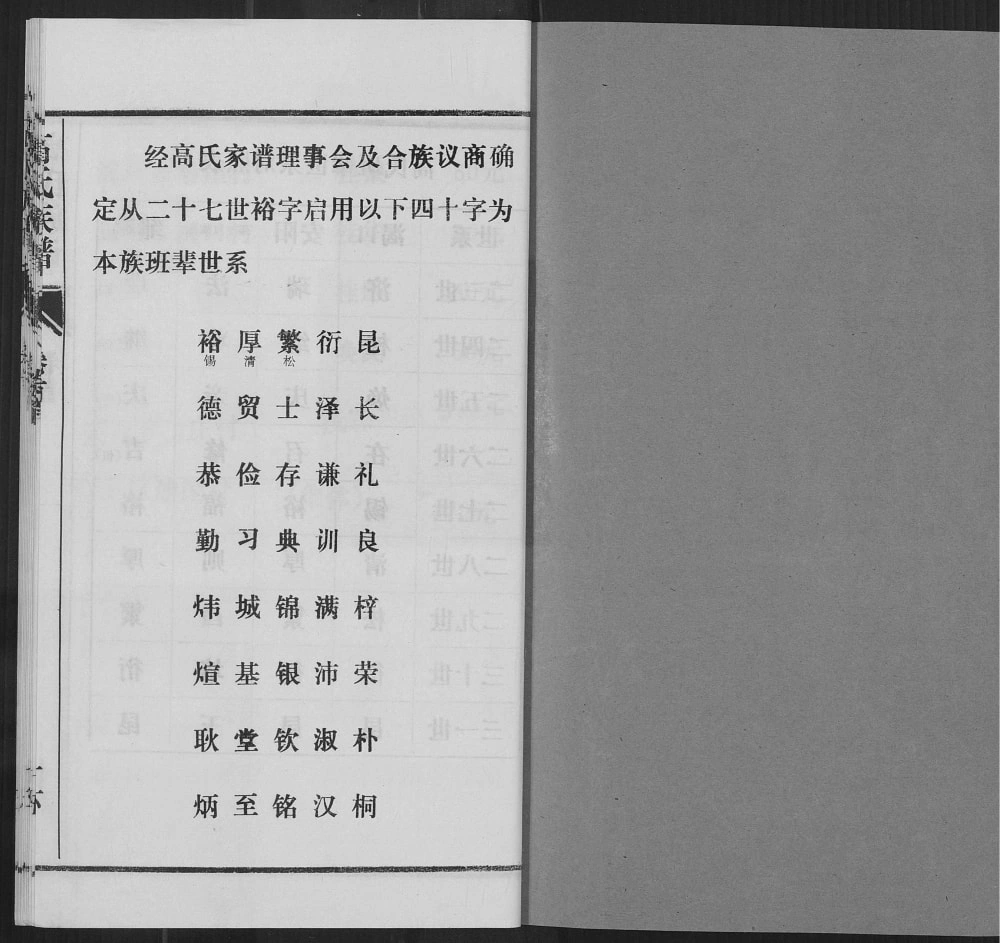 经高氏家谱理事会及合族议商确
定从二十七世裕字启用以下四十字为
本族班辈世系
裕 厚 繁 衍 昆
锡 清 松
德 贸 士 泽 长
恭 俭 存 谦 礼
勤 习 典 训 良
炜 城 锦 满 梓
煊 基 银 沛 荣
耿 堂 钦 淑 朴
炳 至 铭 汉 桐
高氏族谱